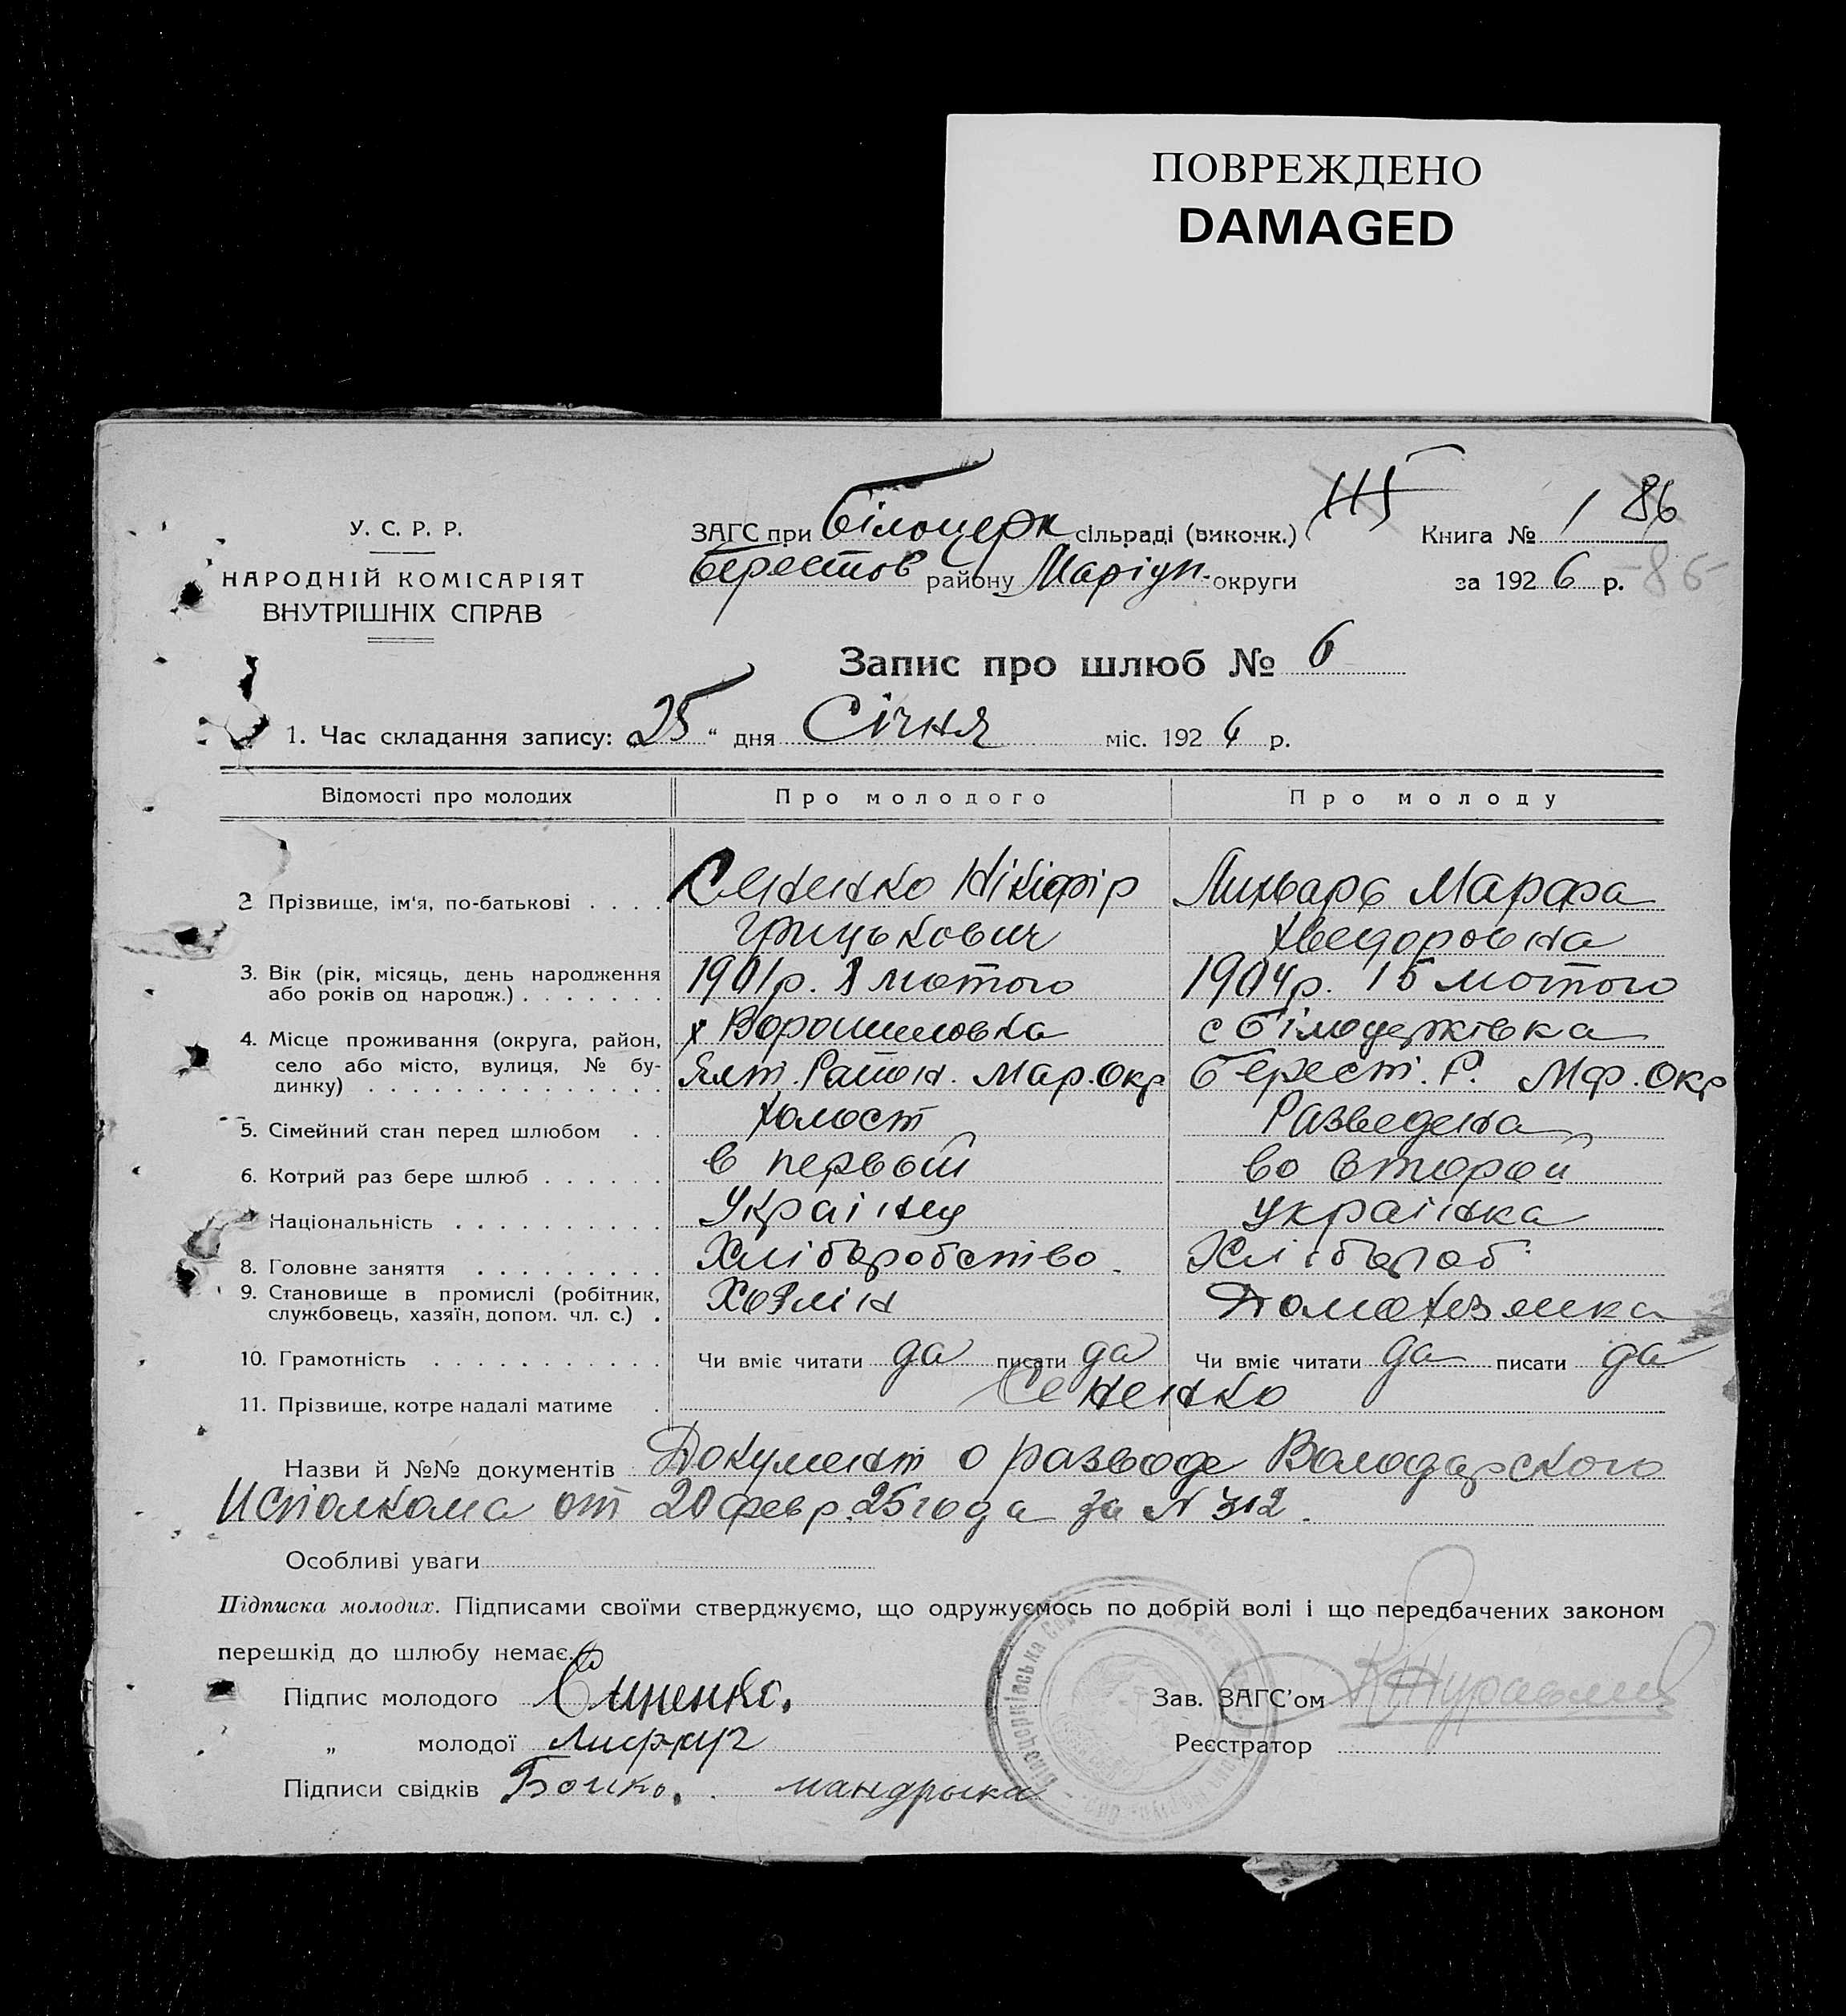 ПОВРЕЖДЕНО
DAMAGED
У. С. Р. Р.
НАРОДНІЙ КОМІСАРІЯТ
ВНУТРІШНІХ СПРАВ
ЗАГС при Білоцерк сільраді (виконк.)
Берестов району Маріуп. округи
Книга № 1 86
за 1926 р. 86
Запис про шлюб № 6
1. Час складання запису: „25“ дня Січня міс. 1926 р.
Відомості про молодих Про молодого Про молоду
2 Прізвище, ім'я, по-батькові Сененко Нікіфір Лихварь Марфа
Грицькович Хведоровна
3. Вік (рік, місяць, день народження або років од народж.) 1901р. 8 лютого 1904р. 15 лютого
4. Місце проживання (округа, район, село або місто, вулиця, № будинку) х Ворошиловка с Білоцерківка
Ялт. Район. Мар. Окр Берест. Р. Мр. Окр
5. Сімейний стан перед шлюбом холост Разведена
6. Котрий раз бере шлюб в первый во второй
Національність Українец українка
8. Головне заняття Хліборобство. Хлібороб
9. Становище в промислі (робітник, службовець, хазяїн, допом. чл. с.) Хозяін Домохозяйка
10. Грамотність Чи вміє читати да писати да Чи вміє читати да писати да
11. Прізвище, котре надалі матиме Сененко
Назви й №№ документів Документ о разводе Володарского
Исполкома от 20 февр. 25 года за N 312.
Особливі уваги
Підписка молодих. Підписами своїми стверджуємо, що одружуємось по добрій волі і що передбачених законом
перешкід до шлюбу немає.
Підпис молодого Сененко.
Зав. ЗАГС'ом
„ молодої
Реєстратор
Підписи свідків Бойко. мандрыка